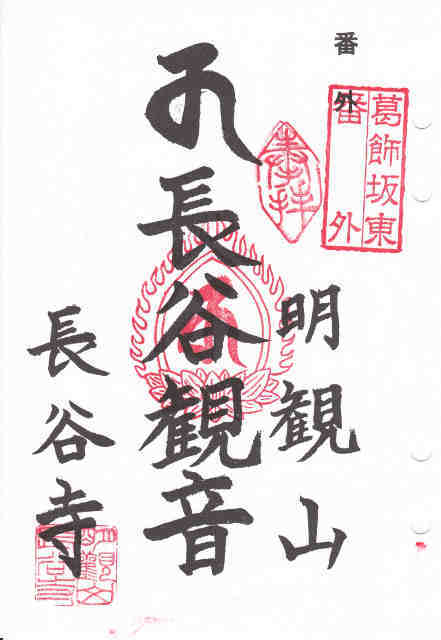 番外
葛飾坂東
番外
奉拝
明観山
長谷観音
長谷寺